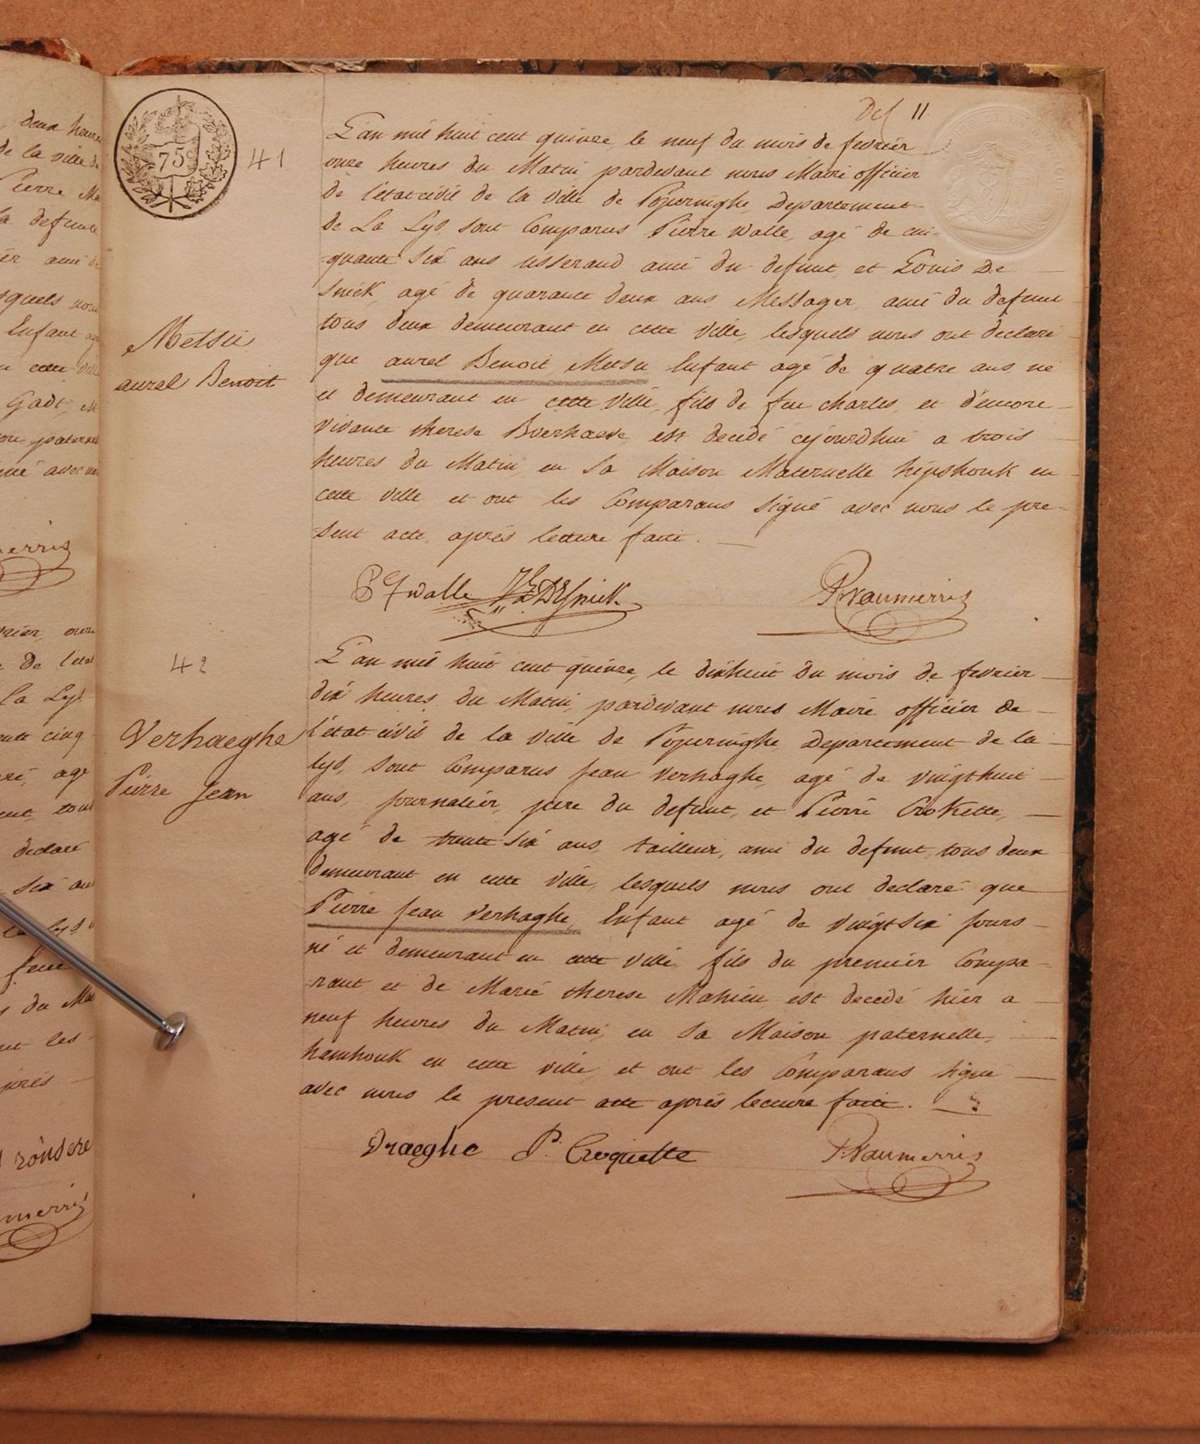 Def 11
75
41
L'an mil huit cent quinze le neuf du mois de fevrier
onze heures du Matin pardevant nous Maire officier
de l'état civil de la ville de Poperinghe Departement
de La Lys sont Comparus Pierre Walle, agé de cin-
quante six ans tisserand ami du defunt et Louis De
Snick, agé de quarante deux ans Messager, ami du defunt
tous deux demeurant en cette ville, lesquels nous ont declaré
que aurel Benoit Metsu Enfant agé de quatre ans né
et demeurant en cette ville, fils de feu charles, et d'encore
vivante therese Boerhaeve est decedé cejourdhui a trois
heures du Matin, en sa Maison Maternelle hipshouk en
cette ville et ont les Comparans signé avec nous le pre-
sent acte, aprés lecture faite.
Metsu
aurel Benoit
walle DeSnick. PVaumerris
42
L'an mil huit cent quinze, le dixhuit du mois de fevrier
dix heures du Matin, pardevant nous Maire officier de
l'état civil de la ville de Poperinghe Departement de la
lys, sont Comparus Jean Verhaghe, agé de vingthuit
ans, journalier, pere du defunt, et Pierre Crokette,
agé de trente six ans tailleur, ami du defunt, tous deux
demeurant en cette ville, lesquels nous ont declaré que
Pierre Jean Verhaghe, Enfant agé de vingt six jours
né et demeurant en cette ville, fils du premier Compa-
rant et de Marie therese Mahieu est decedé hier a
neuf heures du Matin, en sa Maison paternelle,
hamhouk en cette ville, et ont les Comparans signé
avec nous le present acte aprés lecture faite.
Verhaeghe
Pierre Jean
Vraeghe P. Croquette PVaumerris